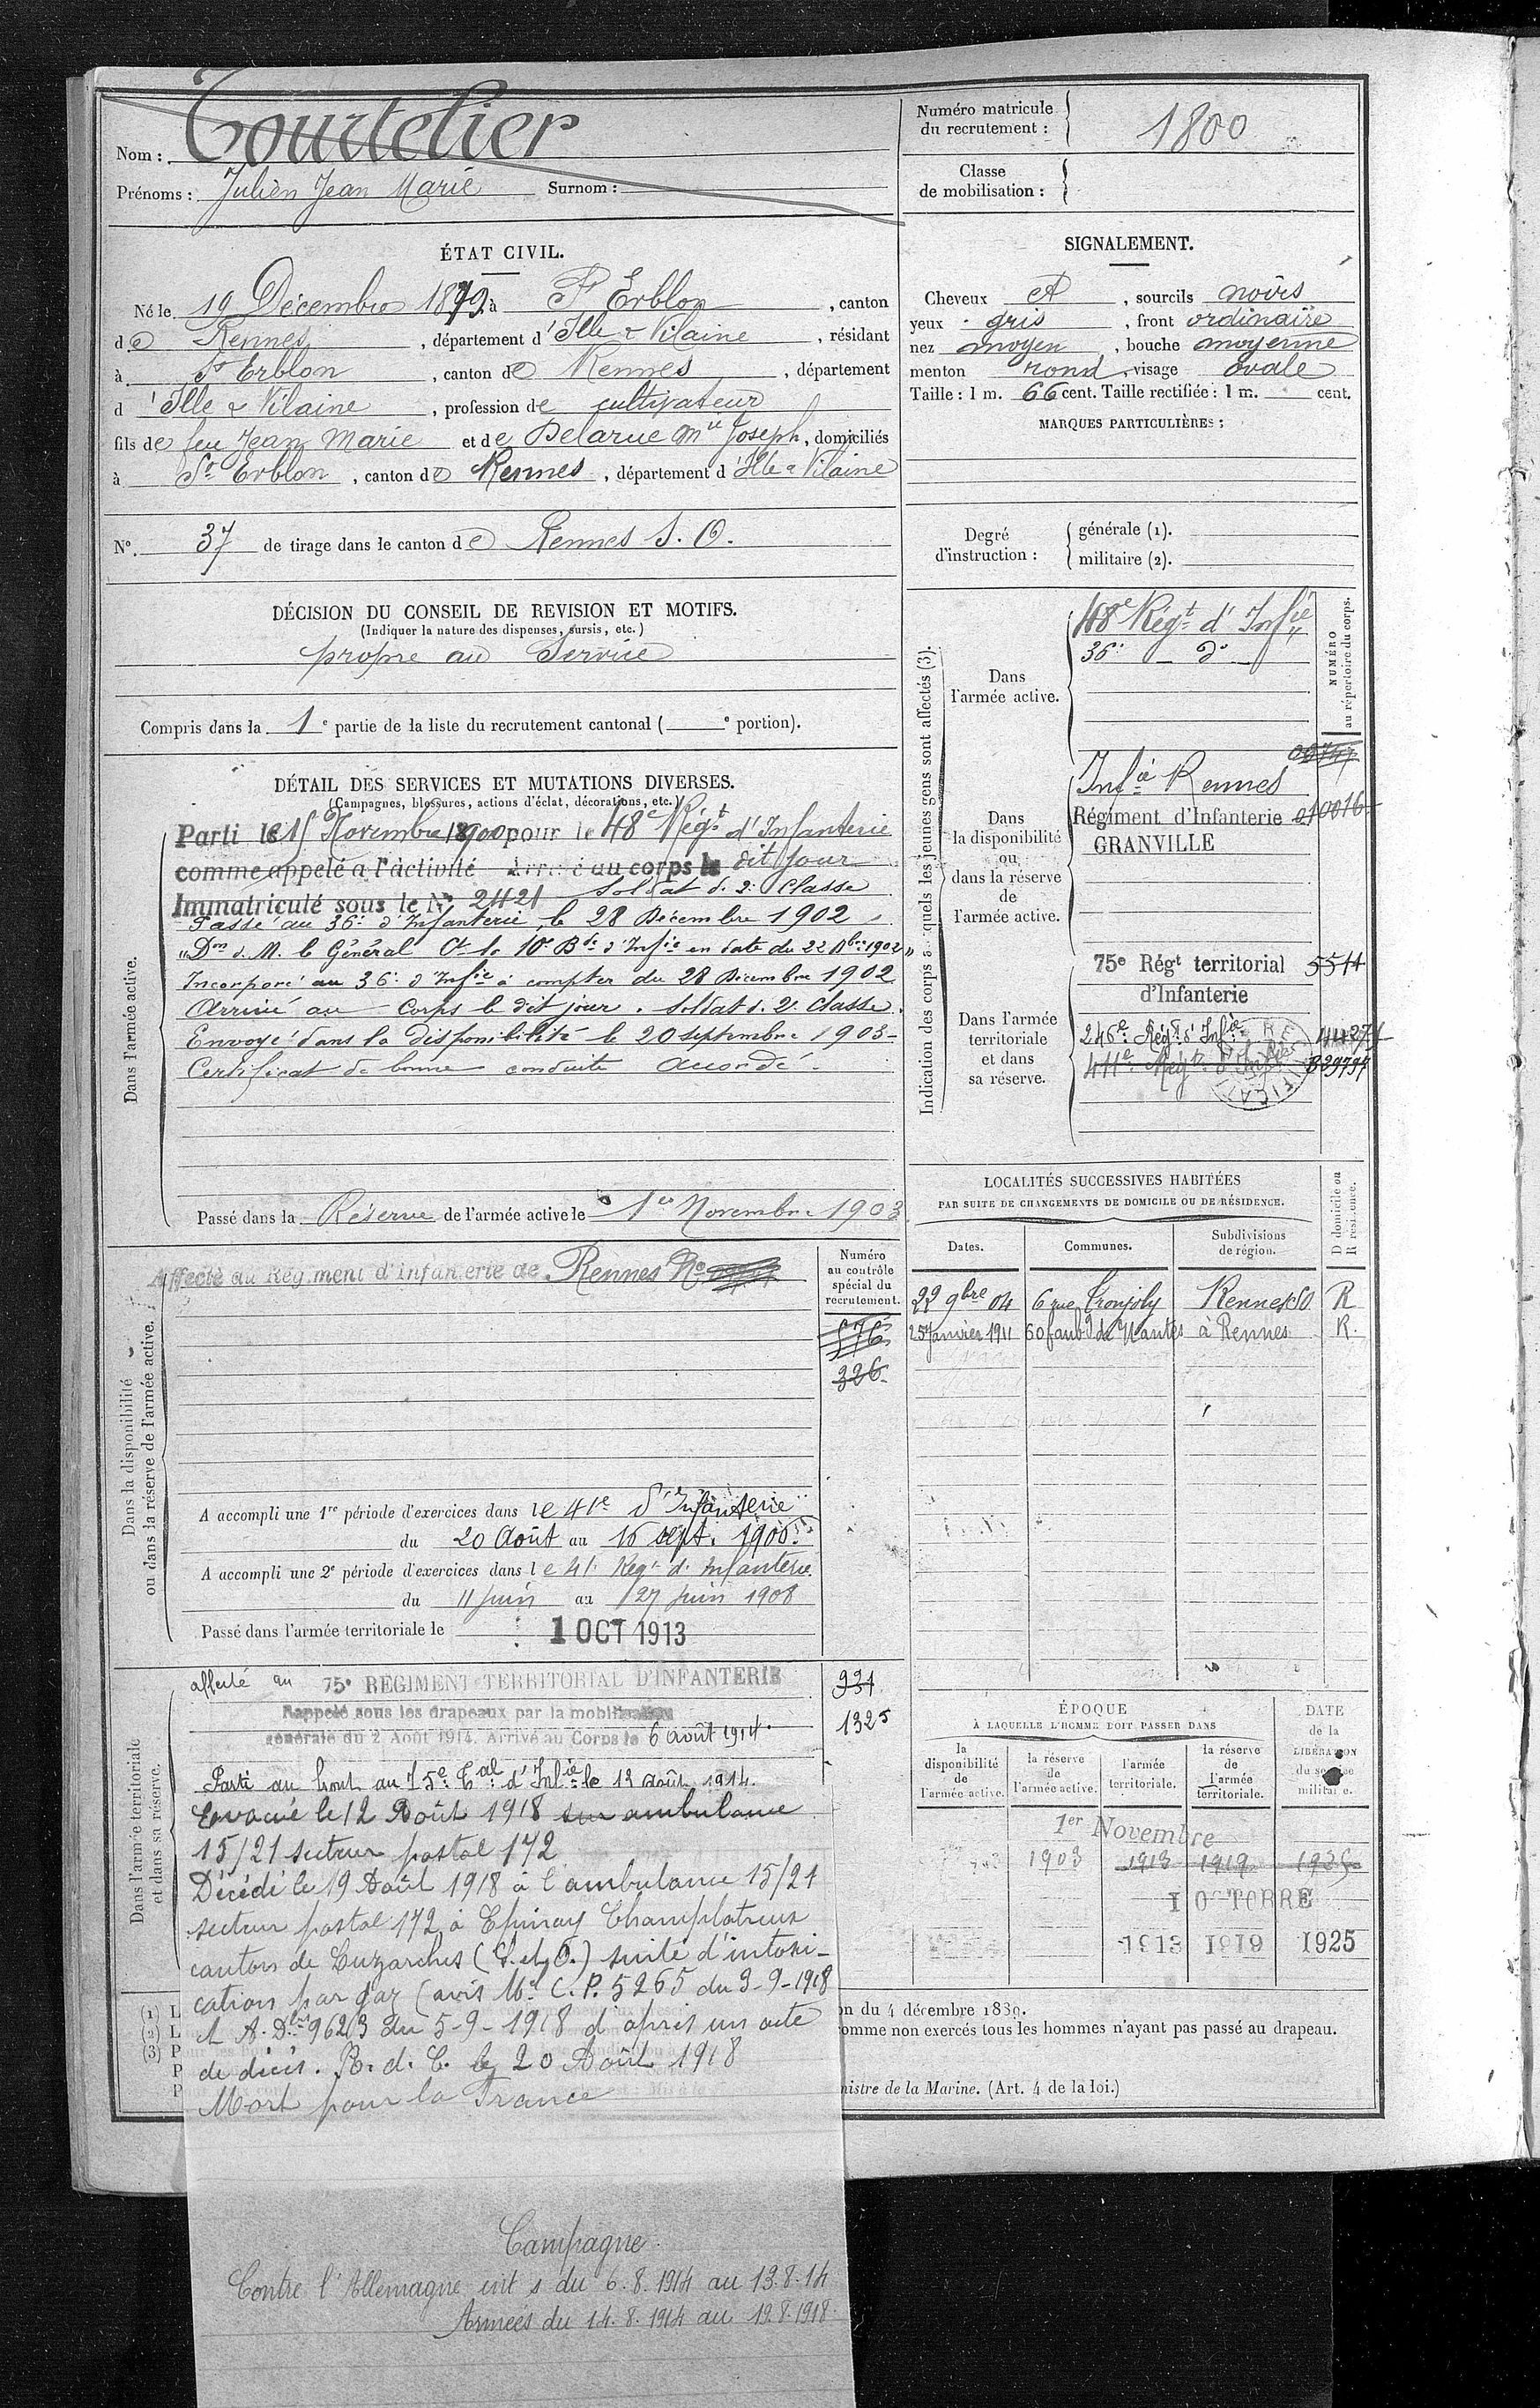 Nom : Tourtelier
Prénoms : Julien Jean Marie Surnom :
Numéro matricule du recrutement : 1800
Classe de mobilisation :
ÉTAT CIVIL.
Né le 19 Décembre 1879, à St Erblon, canton
de Rennes, département d'Ille & Vilaine, résidant
à St Erblon, canton de Rennes, département
d'Ille & Vilaine, profession de cultivateur
fils de feu Jean Marie et de Delarue Mie Joseph, domiciliés
à St Erblon, canton de Rennes, département d'Ille & Vilaine
No. 37 de tirage dans le canton de Rennes S. O.
SIGNALEMENT.
Cheveux et, sourcils noirs
yeux gris, front ordinaire
nez moyen, bouche moyenne
menton rond, visage ovale
Taille : 1 m. 66 cent. Taille rectifiée : 1 m. cent.
MARQUES PARTICULIÈRES :
Degré d'instruction :
générale (1).
militaire (2).
DÉCISION DU CONSEIL DE REVISION ET MOTIFS.
(Indiquer la nature des dispenses, sursis, etc.)
propre au Service
Compris dans la 1e partie de la liste du recrutement cantonal ( e portion).
DÉTAIL DES SERVICES ET MUTATIONS DIVERSES.
(Campagnes, blessures, actions d'éclat, décorations, etc.)
Dans l'armée active.
Parti le 15 Novembre 1900 pour le 48e Régt d'Infanterie
comme appelé à l'activité Arrivé au corps le dit jour
Immatriculé sous le No 2421 Soldat de 2e Classe
Passé au 36e d'Infanterie, le 28 Décembre 1902
"Don de M. le Général Ct la 10e Bde d'Infie en date du 22 Xbre 1902"
Incorporé au 36e d'Infie à compter du 28 Décembre 1902
Arrivé au Corps le dit jour. Soldat de 2e Classe.
Envoyé dans la disponibilité le 20 septembre 1903
Certificat de bonne conduite Accordé.
Passé dans la Réserve de l'armée active le 1er Novembre 1903
Indication des corps auxquels les jeunes gens sont affectés (3).
NUMÉRO au répertoire du corps.
Dans l'armée active.
48e Régt d'Infie
36e - do -
Dans la disponibilité ou dans la réserve de l'armée active.
Infie Rennes
Régiment d'Infanterie 010016
GRANVILLE
Dans l'armée territoriale et dans sa réserve.
75e Régt territorial d'Infanterie
246e Régt d'Infie
411e Régt d'Infie
LOCALITÉS SUCCESSIVES HABITÉES
PAR SUITE DE CHANGEMENTS DE DOMICILE OU DE RÉSIDENCE.
Dates. Communes. Subdivisions de région. D domicile ou R résidence.
22 9bre 04 6 rue Tronjoly Rennes SO R
25 Janvier 1911 60 faubg de Nantes à Rennes R.
Dans la disponibilité ou dans la réserve de l'armée active.
Numéro au contrôle spécial du recrutement.
Affecté au Régiment d'Infanterie de Rennes No
576
326
A accompli une 1re période d'exercices dans le 41e d'Infanterie
du 20 Août au 16 sept. 1906
A accompli une 2e période d'exercices dans le 41e Regt d'Infanterie
du 11 Juin au 27 Juin 1908
Passé dans l'armée territoriale le 1 OCT 1913
Dans l'armée territoriale et dans sa réserve.
affecté au 75e REGIMENT TERRITORIAL D'INFANTERIE
931
Rappelé sous les drapeaux par la mobilisation
1325
générale du 2 Août 1914. Arrivé au Corps le 6 août 1914.
Parti au front au 75e Tal d'Infie le 13 août 1914.
Evacué le 12 Août 1918 sur ambulance
15/21 secteur postal 172
Décédé le 19 Août 1918 à l'ambulance 15/21
secteur postal 172 à Epinay Champlatreux
canton de Luzarches (S. et O.) suite d'intoxi-
cation par gaz (avis Mel C. P. 5265 du 3-9-1918
et A. D. 9623 du 5-9-1918 d'après un acte
de décès. R. d. C. le 20 Août 1918
Mort pour la France
ÉPOQUE
À LAQUELLE L'HOMME DOIT PASSER DANS
la disponibilité de l'armée active.
la réserve de l'armée active.
l'armée territoriale.
la réserve de l'armée territoriale.
DATE de la LIBÉRATION du service militaire.
1er Novembre
1903 1913 1919 1925
1 OCTOBRE
1913 1919 1925
(1) L
(2) L
(3) P
P
P
on du 4 décembre 1889.
omme non exercés tous les hommes n'ayant pas passé au drapeau.
nistre de la Marine. (Art. 4 de la loi.)
Campagne
Contre l'Allemagne int s du 6.8.1914 au 13.8.14
Armées du 14.8.1914 au 19.8.1918